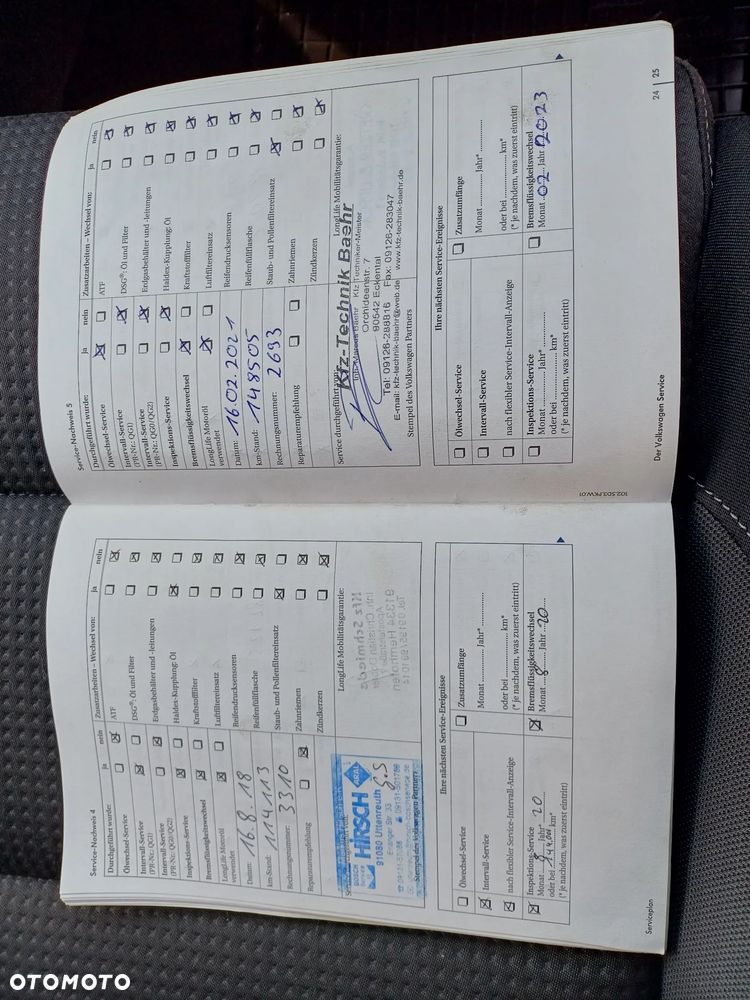 Service-Nachweis 4
Durchgeführt wurde: ja nein
Ölwechsel-Service
Intervall-Service
(PR-Nr.: QG1)
Intervall-Service
(PR-Nr.: QG0/QG2)
Inspektions-Service
Bremsflüssigkeitswechsel
LongLife Motoröl
verwendet
Datum: 16.8.18
km-Stand: 114113
Rechnungsnummer: 3310
Reparaturempfehlung
BOSCH
HIRSCH
ARAL
91080 Uttenreuth
Stempel des Volkswagen Partners
Zusatzarbeiten – Wechsel von: ja nein
ATF
DSG®: Öl und Filter
Erdgasbehälter und -leitungen
Haldex-Kupplung: Öl
Kraftstofffilter
Luftfiltereinsatz
Reifendrucksensoren
Reifenfüllflasche
Staub- und Pollenfiltereinsatz
Zahnriemen
Zündkerzen
LongLife Mobilitätsgarantie:
Ihre nächsten Service-Ereignisse
Ölwechsel-Service
Intervall-Service
nach flexibler Service-Intervall-Anzeige
Inspektions-Service
Monat 8 Jahr* 20
oder bei 144.000 km*
(* je nachdem, was zuerst eintritt)
Zusatzumfänge
Monat Jahr*
oder bei km*
(* je nachdem, was zuerst eintritt)
Bremsflüssigkeitswechsel
Monat 8 Jahr 20
Serviceplan
102.5D3.PKW.01
Service-Nachweis 5
Durchgeführt wurde: ja nein
Ölwechsel-Service
Intervall-Service
(PR-Nr.: QG1)
Intervall-Service
(PR-Nr.: QG0/QG2)
Inspektions-Service
Bremsflüssigkeitswechsel
LongLife Motoröl
verwendet
Datum: 16.02.2021
km-Stand: 148505
Rechnungsnummer: 2693
Reparaturempfehlung
Service durchgeführt von:
Kfz-Technik Baehr
Inh. Marcus Baehr Kfz Techniker-Meister
Orchideenstr. 7
90542 Eckental
Tel: 09126-288816 Fax: 09126-283047
E-mail: kfz-technik-baehr@web.de www.kfz-technik-baehr.de
Stempel des Volkswagen Partners
Zusatzarbeiten – Wechsel von: ja nein
ATF
DSG®: Öl und Filter
Erdgasbehälter und -leitungen
Haldex-Kupplung: Öl
Kraftstofffilter
Luftfiltereinsatz
Reifendrucksensoren
Reifenfüllflasche
Staub- und Pollenfiltereinsatz
Zahnriemen
Zündkerzen
LongLife Mobilitätsgarantie:
Ihre nächsten Service-Ereignisse
Ölwechsel-Service
Intervall-Service
nach flexibler Service-Intervall-Anzeige
Inspektions-Service
Monat Jahr*
oder bei km*
(* je nachdem, was zuerst eintritt)
Zusatzumfänge
Monat Jahr*
oder bei km*
(* je nachdem, was zuerst eintritt)
Bremsflüssigkeitswechsel
Monat 02 Jahr 2023
Der Volkswagen Service
24 | 25
OTOMOTO